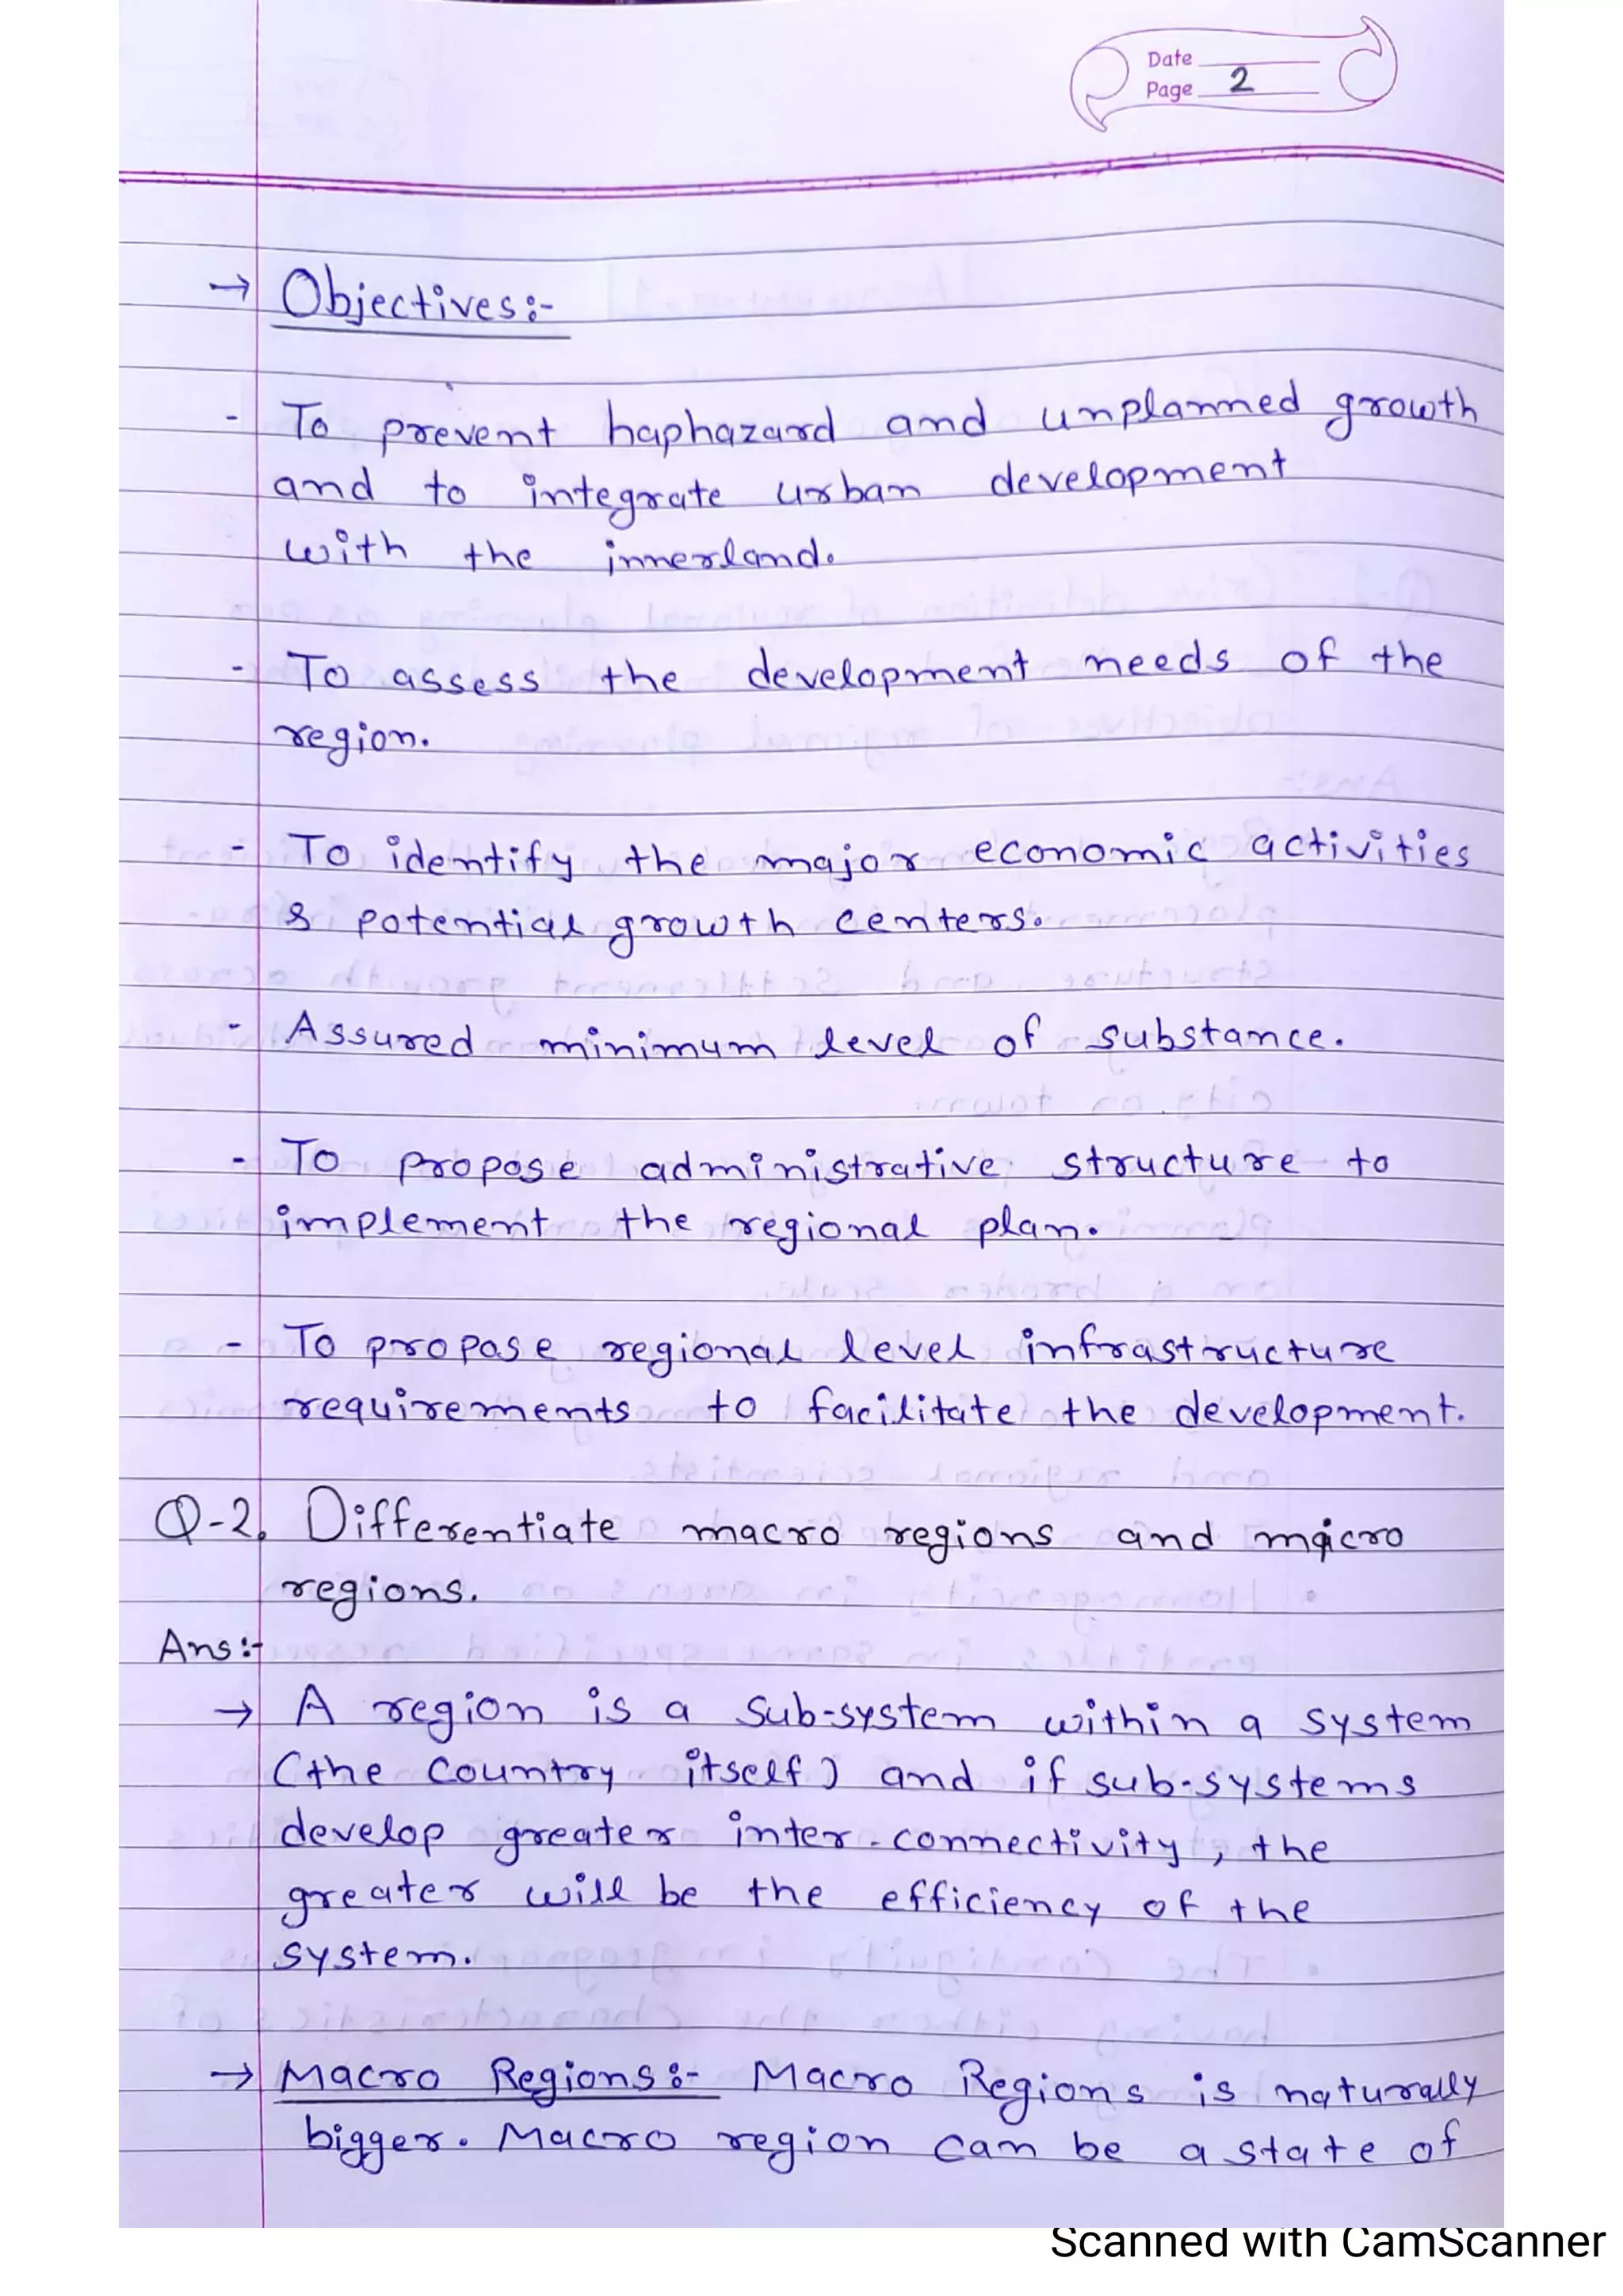 Date
Page 2
→ Objectives:-
- To prevent haphazard and unplanned growth
and to integrate urban development
with the innerland.
- To assess the development needs of the
region.
- To identify the major economic activities
& potential growth centers.
- Assured minimum level of substance.
- To propose administrative structure to
implement the regional plan.
- To propose regional level infrastructure
requirements to facilitate the development.
Q-2. Differentiate macro regions and micro
regions.
Ans:-
→ A region is a sub-system within a system
(the country itself) and if sub-systems
develop greater inter-connectivity, the
greater will be the efficiency of the
system.
→ Macro Regions:- Macro Regions is naturally
bigger. Macro region can be a state of
Scanned with CamScanner